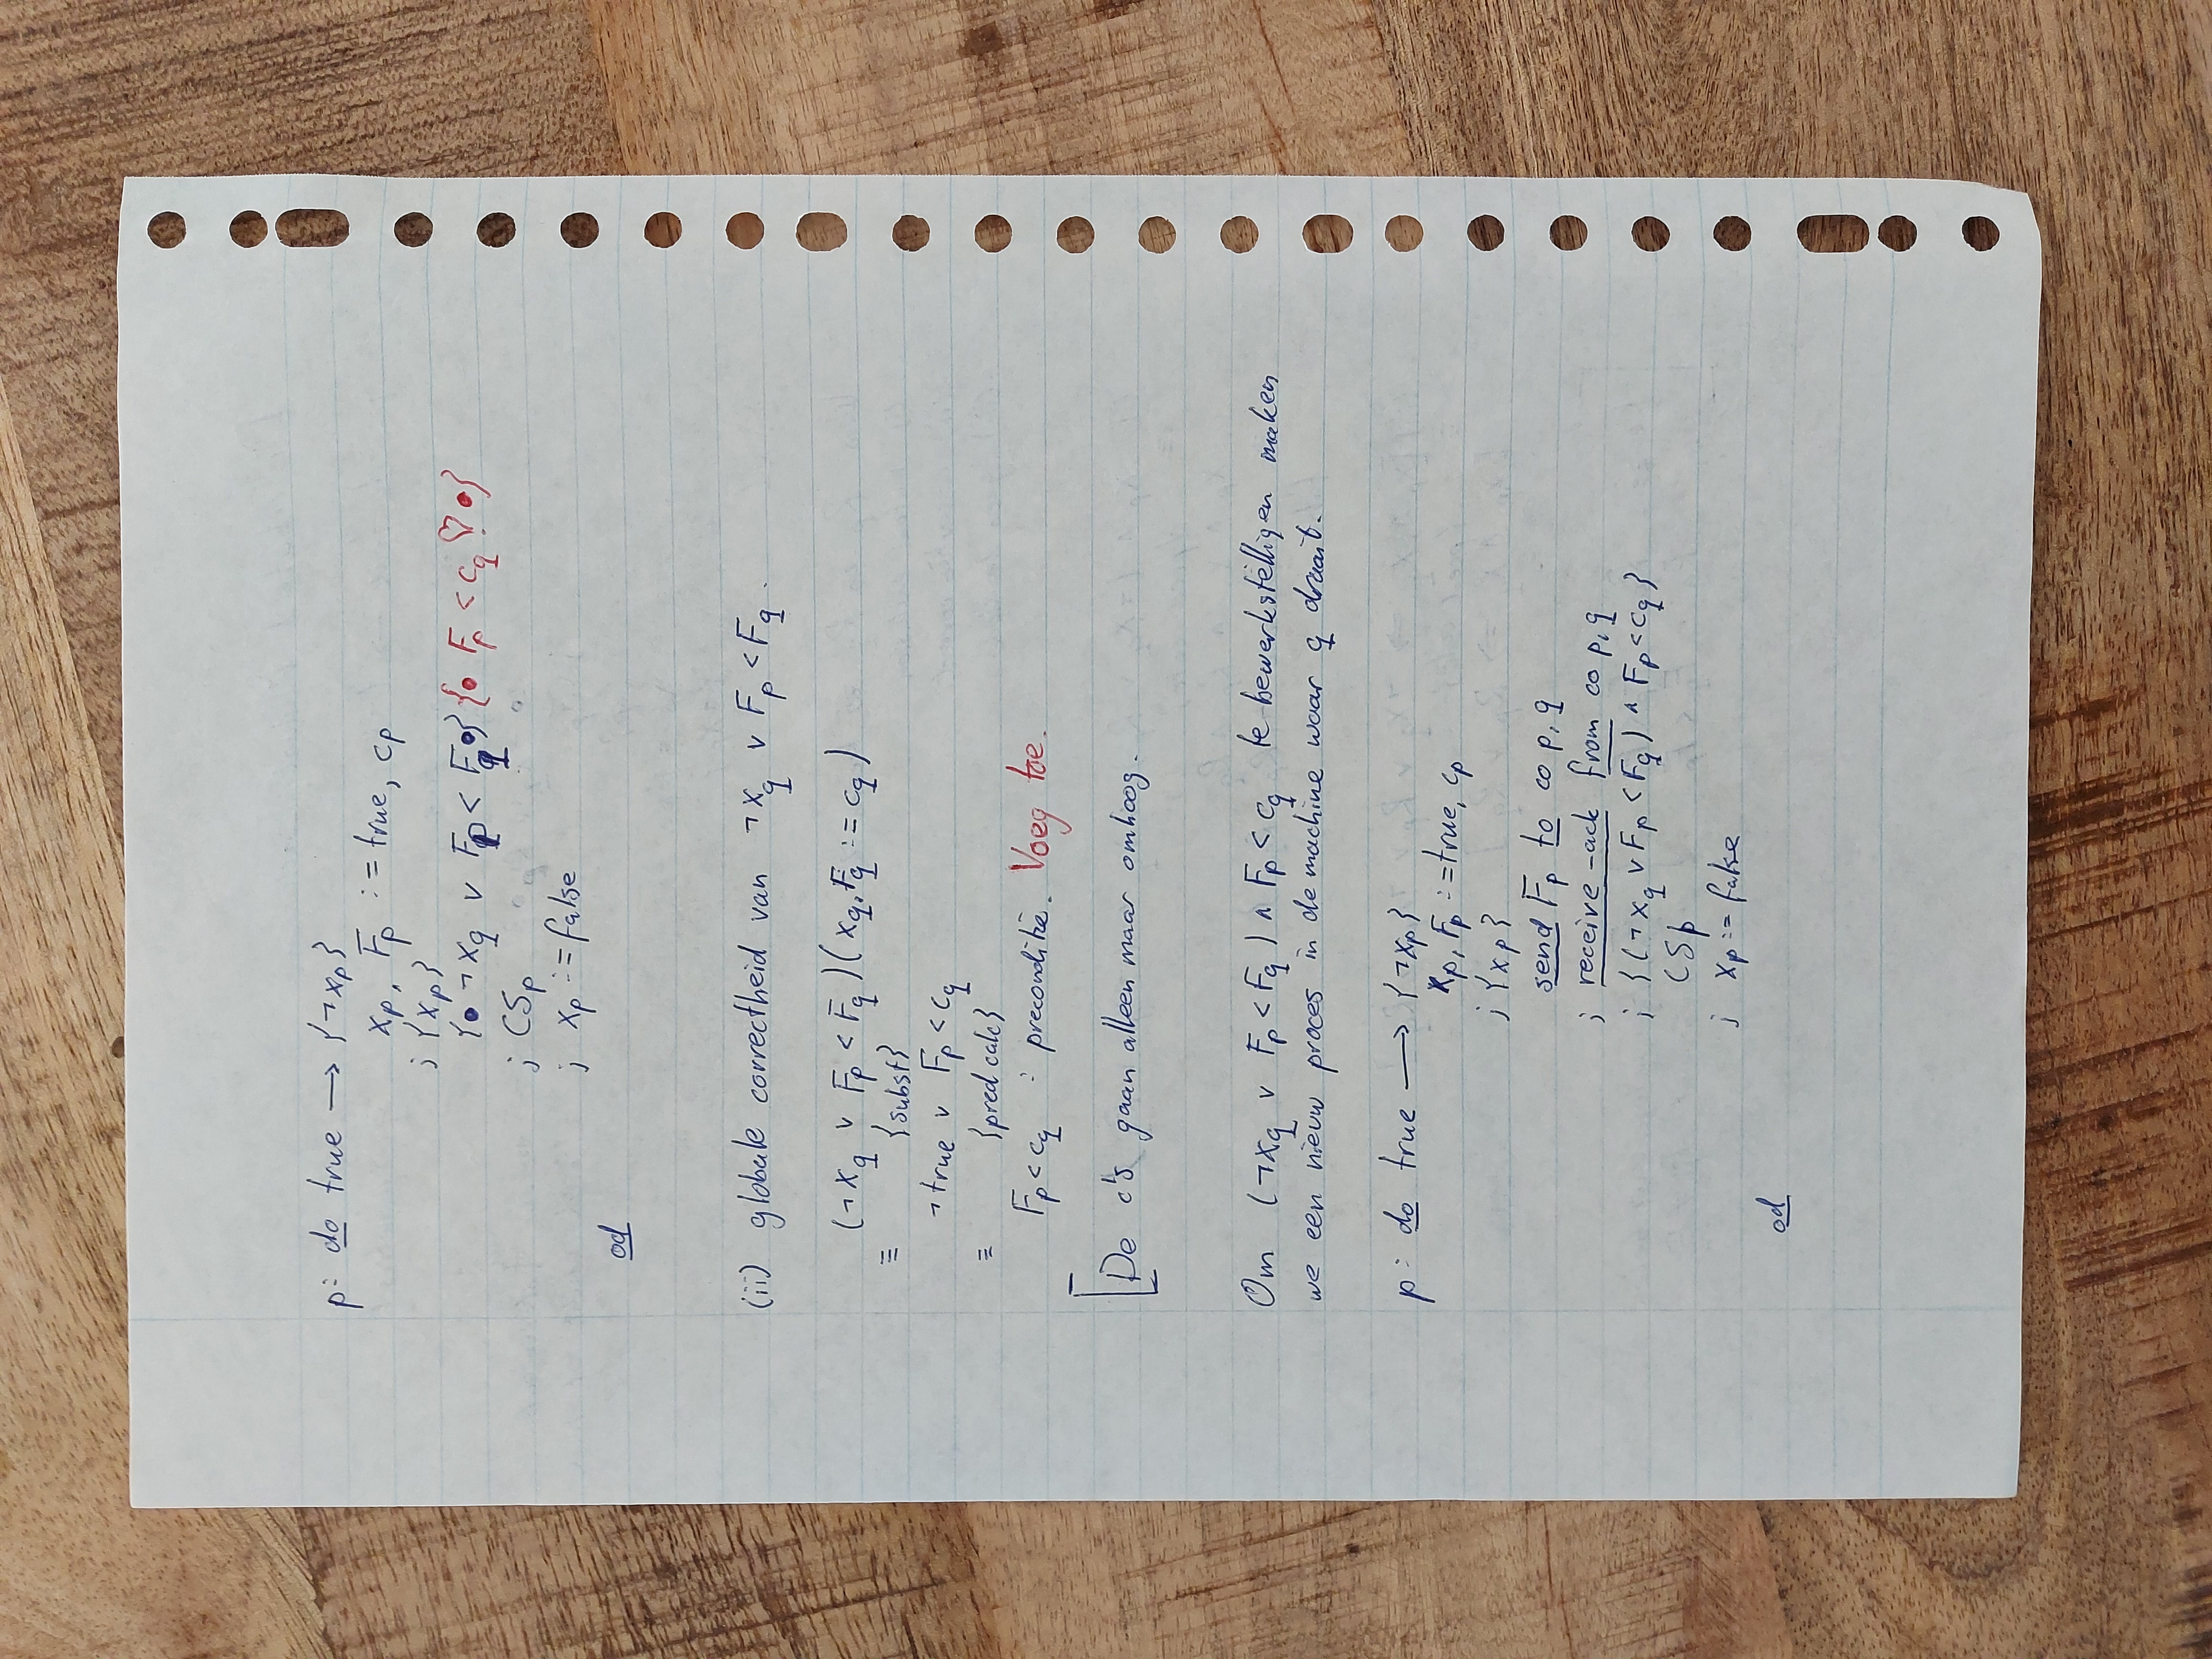 p: do true → {¬xp}
xp, Fp := true, cp
; {xp}
{• ¬xq ∨ Fp < Fq •} {• Fp < cq ♡ •}
; CSp
; xp := false
od
(ii) globale correctheid van ¬xq ∨ Fp < Fq.
(¬xq ∨ Fp < Fq)(xq, Fq := cq)
≡ {subst}
¬true ∨ Fp < cq
≡ {pred calc}
Fp < cq : preconditie. Voeg toe.
[De c's gaan alleen maar omhoog.
Om (¬xq ∨ Fp < Fq) ∧ Fp < cq te bewerkstelligen maken
we een nieuw proces in de machine waar q draait.
p: do true → {¬xp}
xp, Fp := true, cp
; {xp}
send Fp to co p,q
; receive-ack from co p,q
; {(¬xq ∨ Fp < Fq) ∧ Fp < cq}
CSp
; xp := false
od